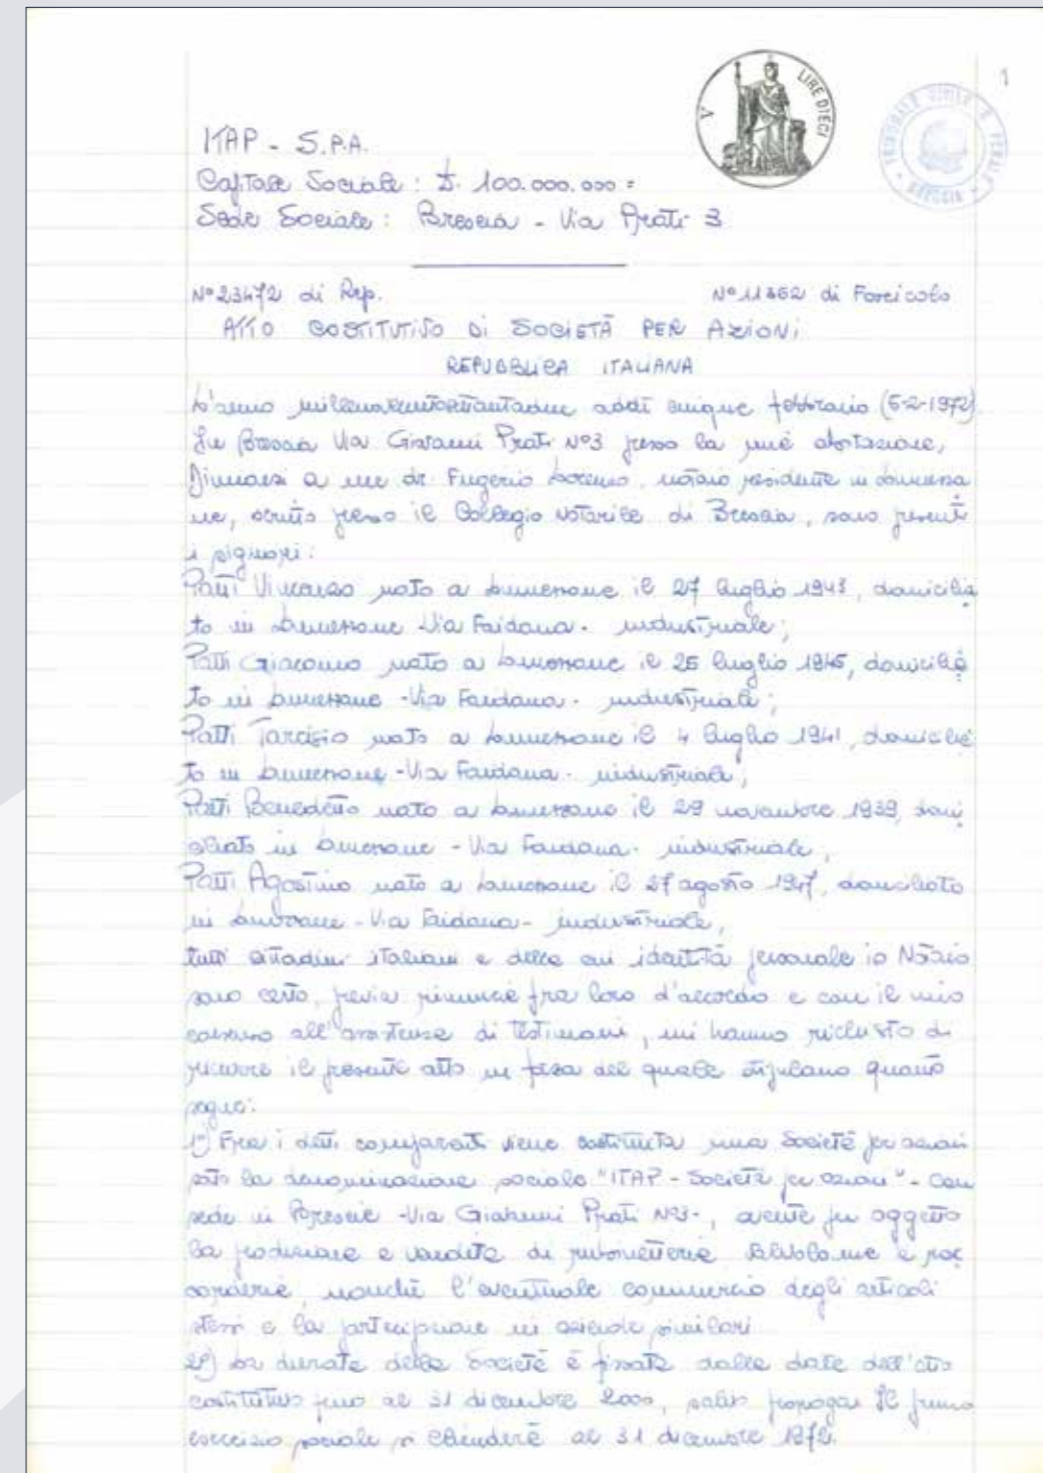 1
V LIRE DIECI
TRIBUNALE CIVILE E PENALE BRESCIA
ITAP - S.P.A.
Capitale Sociale: £. 100.000.000=
Sede Sociale: Brescia - Via Prati 3
N° 23472 di Rep. N° 11362 di Fascicolo
ATTO COSTITUTIVO DI SOCIETÀ PER AZIONI
REPUBBLICA ITALIANA
L'anno millenovecentosettantadue addì cinque febbraio (5-2-1972)
In Brescia Via Giovanni Prati N°3 presso la mia abitazione,
Dinnanzi a me dr. Eugenio notaio residente in Lumezza
ne, iscritto presso il Collegio Notarile di Brescia, sono presenti
i signori:
Patti Vincenzo nato a Lumezzane il 27 luglio 1943, domicilia
to in Lumezzane Via Faidana - industriale;
Patti Giacomo nato a Lumezzane il 25 luglio 1945, domicilia
to in Lumezzane - Via Faidana - industriale;
Patti Tarcisio nato a Lumezzane il 4 luglio 1941, domicilia
to in Lumezzane - Via Faidana - industriale;
Patti Benedetto nato a Lumezzane il 29 novembre 1939, domi
ciliato in Lumezzane - Via Faidana - industriale;
Patti Agostino nato a Lumezzane il 27 agosto 1947, domiciliato
in Lumezzane - Via Faidana - industriale,
tutti cittadini italiani e della cui identità personale io Notaio
sono certo, previa rinuncia fra loro d'accordo e con il mio
consenso all'assistenza di testimoni, mi hanno richiesto di
ricevere il presente atto in forza del quale stipulano quanto
segue:
1°) Fra i detti comparenti viene costituita una Società per azioni
sotto la denominazione sociale "ITAP - Società per azioni" - con
sede in Brescia - Via Giovanni Prati N°3-, avente per oggetto
la produzione e vendita di rubinetterie valvolame e rac
corderie, nonché l'eventuale commercio degli articoli
stessi e la partecipazione in aziende similari
2°) La durata della Società è fissata dalla data dell'atto
costitutivo fino al 31 dicembre 2000, salvo proroga. Il primo
esercizio sociale si chiuderà al 31 dicembre 1972.